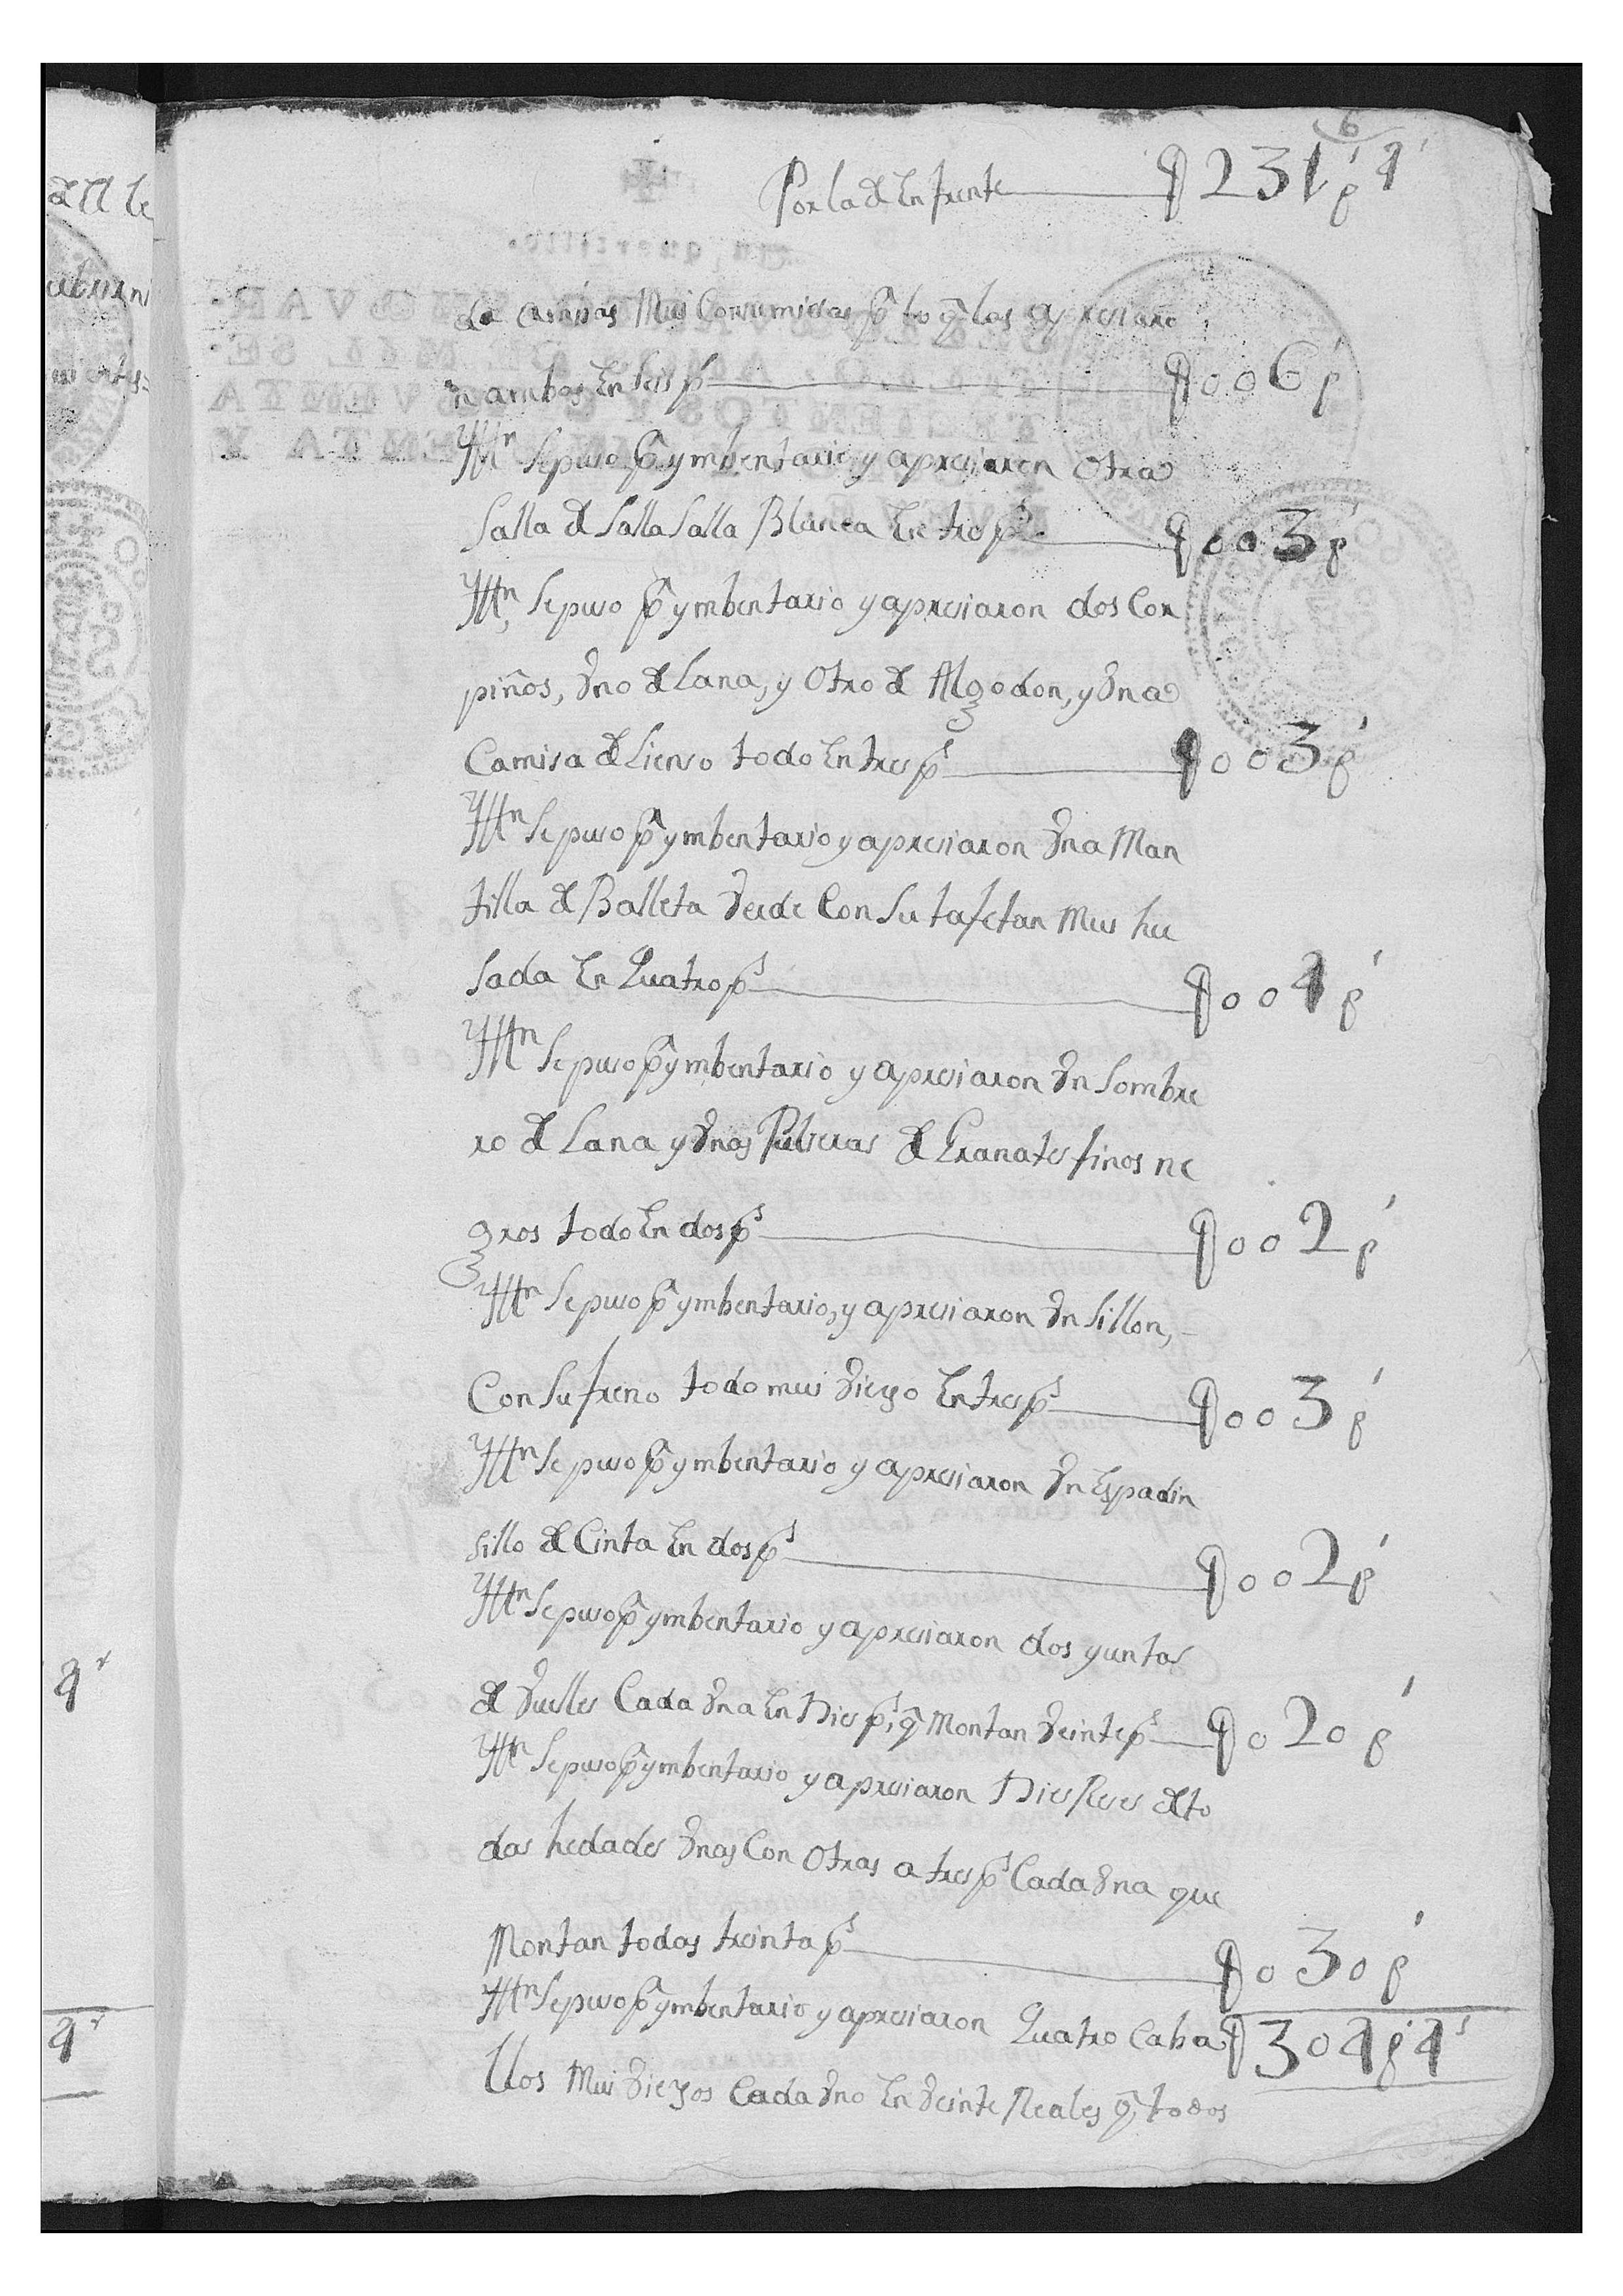 6
Por la de En frente — $ 231 ps 4
de ambas Mui Consumidas pr lo q las apresiaro
n ambas En seis ps — $ 006 p
Yttn Se puso pr ymbentario y apresiaron Otra
Salla de Salla Salla Blanca En tres ps — $ 003 p
Yttn Se puso pr ymbentario y apresiaron dos Cor
piños, Vno de Lana, y Otro de Algodon, y Vna
Camisa de Lienso todo En tres ps — $ 003 p
Yttn Se puso pr ymbentario y apresiaron Vna Man
tilla de Balleta Verde Con Su tafetan Mui hu
sada En Quatro ps — $ 004 p
Yttn Se puso pr ymbentario y apresiaron Vn Sombre
ro de Lana y Vnas Pulseras de Granates finos ne
gros todo En dos ps — $ 002 p
Yttn Se puso pr ymbentario, y apresiaron Vn Sillon,
Con Su freno todo mui Viejo En tres ps — $ 003 p
Yttn Se puso pr ymbentario y apresiaron Vn Espadin
sillo de Cinta En dos ps — $ 002 p
Yttn Se puso pr ymbentario y apresiaron dos yuntas
de Vuelles Cada Vna En Dies ps, q Montan Veinte ps — $ 020 p
Yttn Se puso pr ymbentario y apresiaron Dies Reses de to
das hedades Vnas Con Otras a tres ps Cada Vna que
Montan todas treinta ps — $ 030 p
Yttn Se puso pr ymbentario y apresiaron Quatro Caba $ 304 p 4
llos Mui Viejos Cada Vno En Veinte Reales q todos